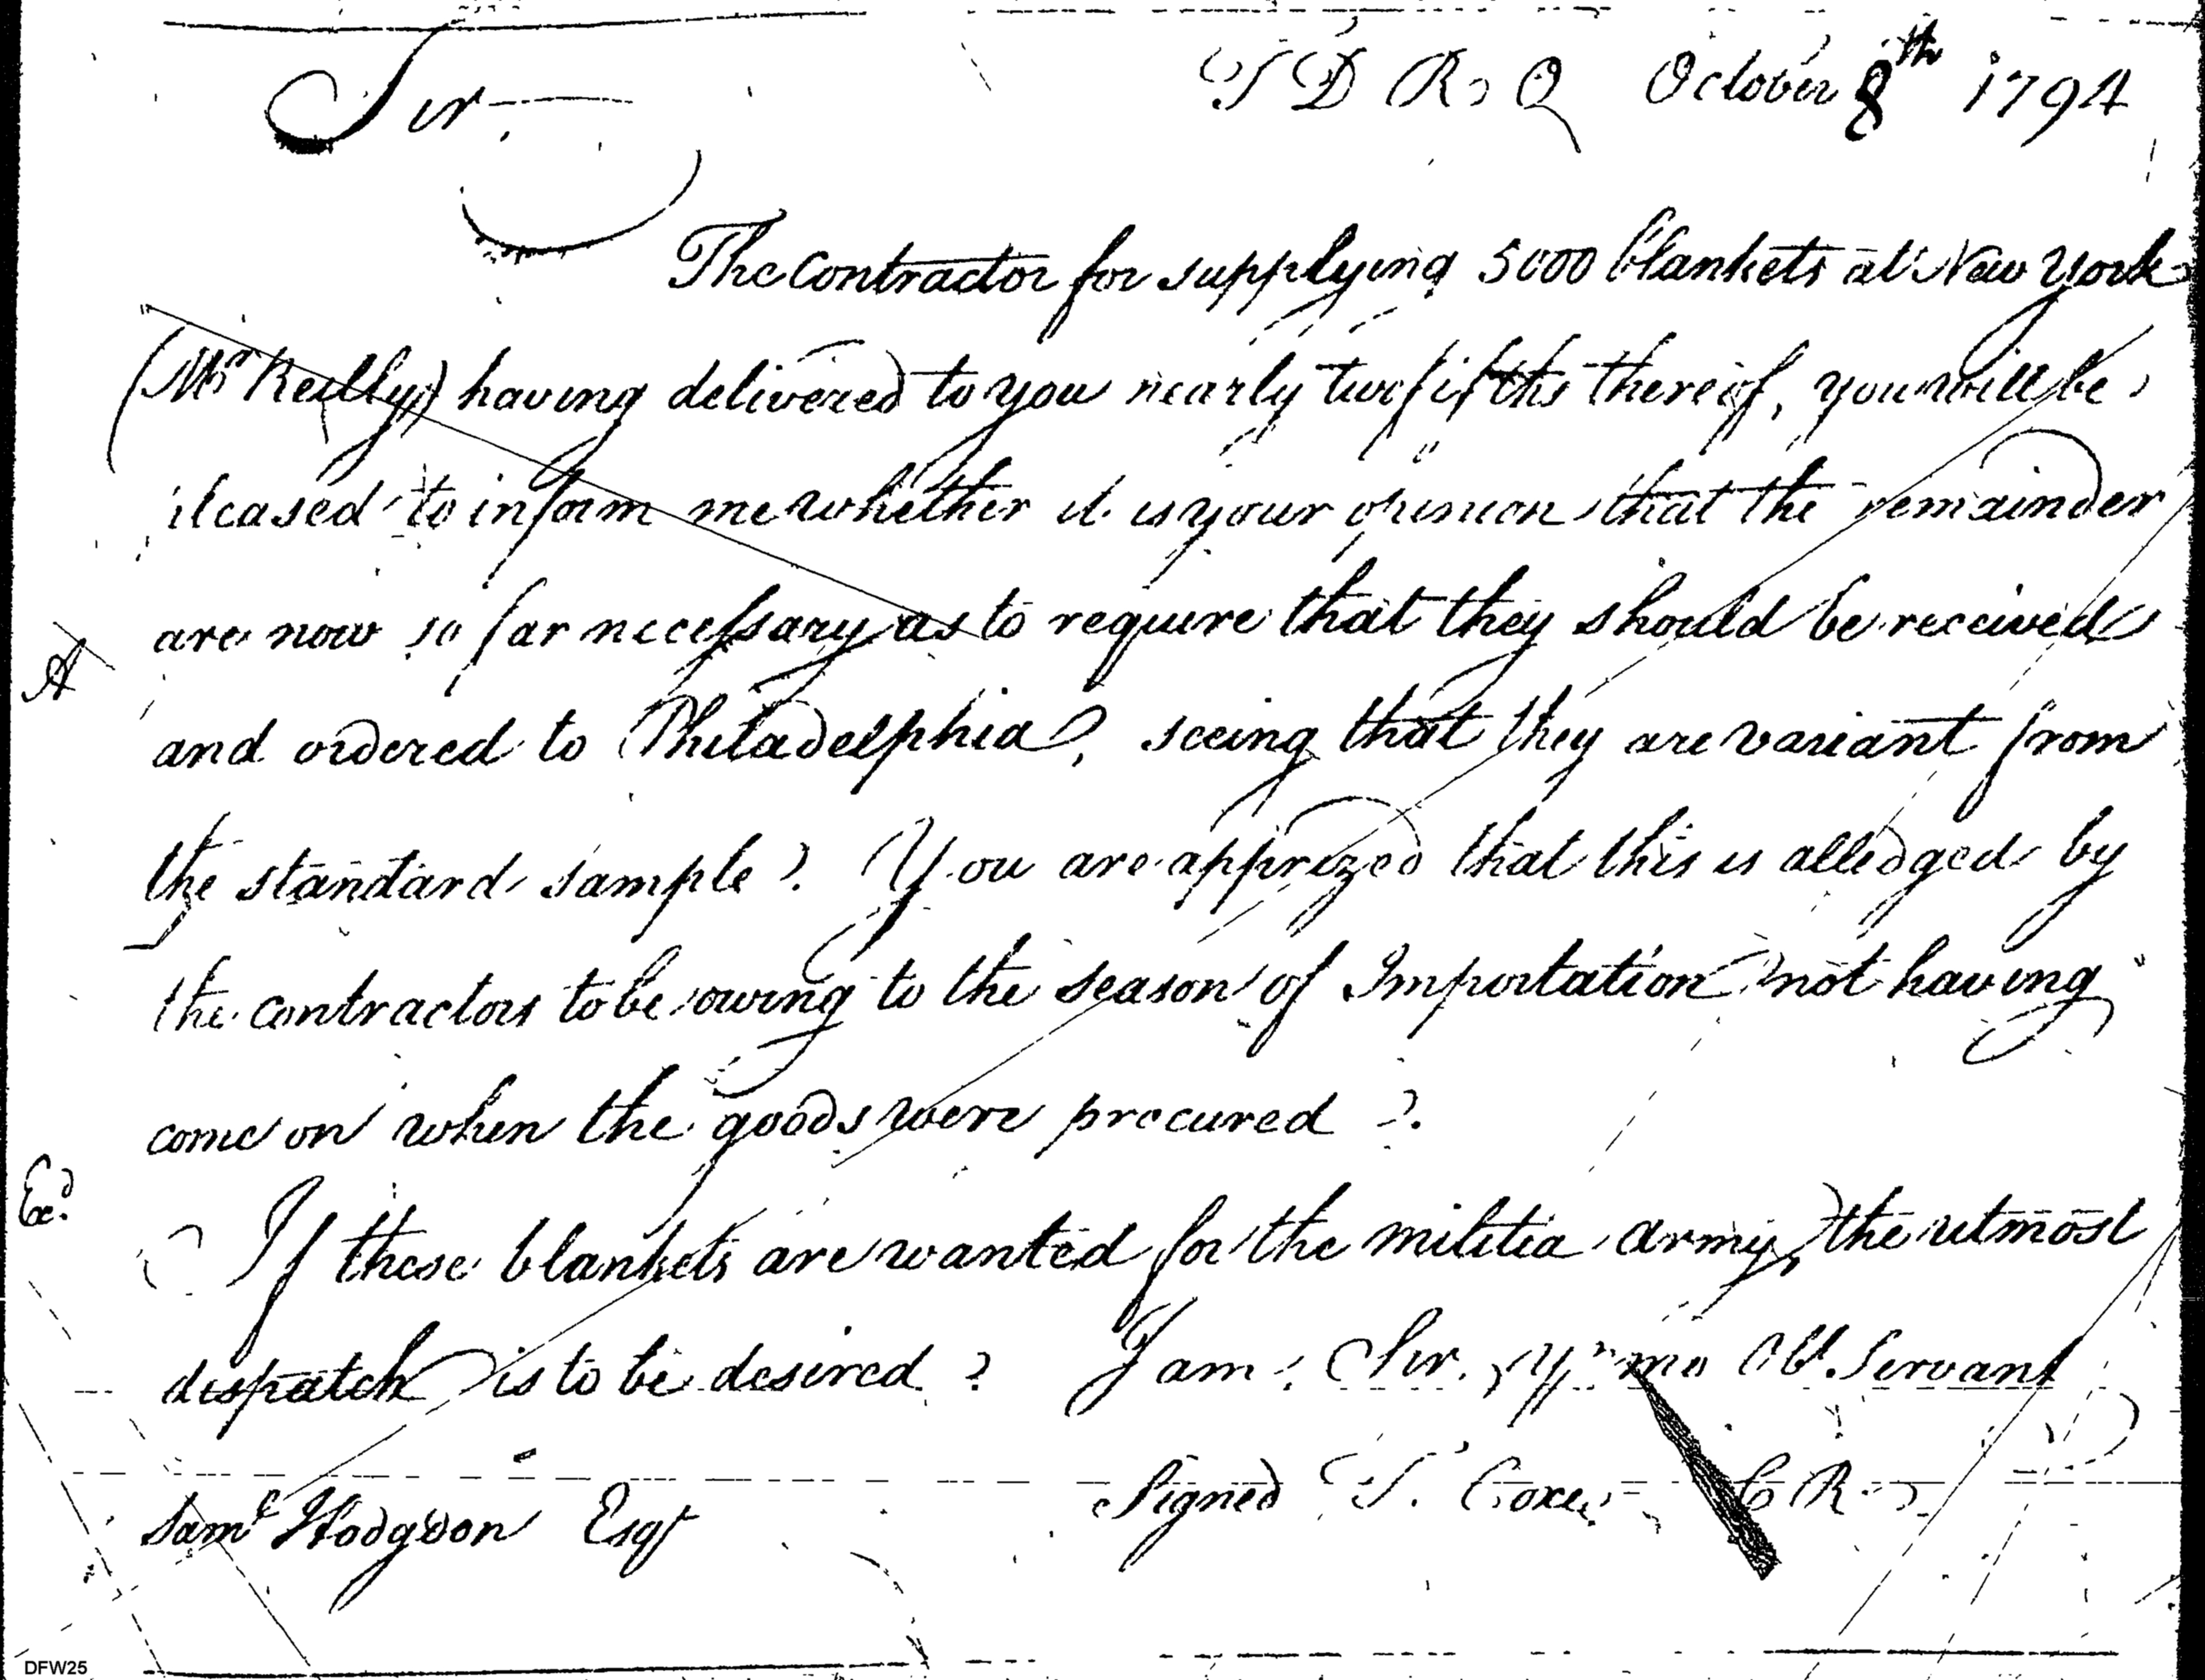 Sir T D R. O October 8th 1794
The Contractor for supplying 5000 blankets at New York
(Mr Reilly) having delivered to you nearly two fifths thereof, you will be
pleased to inform me whether it is your opinion that the remainder
are now so far necessary as to require that they should be received
A
and ordered to Philadelphia, seeing that they are variant from
the standard sample? You are apprized that this is alledged by
the contractors to be owing to the season of Importation not having
come on when the goods were procured?
Exd.
If these blankets are wanted for the militia army, the utmost
dispatch is to be desired? I am, Sir, Yr mo Ob. Servant
Signed T. Coxe C R
Saml Hodgdon Esqr
DFW25